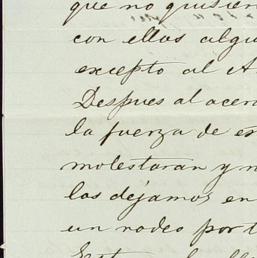 que no quisier
con ellas algu
excepto al A
Despues al acer
la fuerza de es
molestaran y n
las dejamos en
un nodes por t